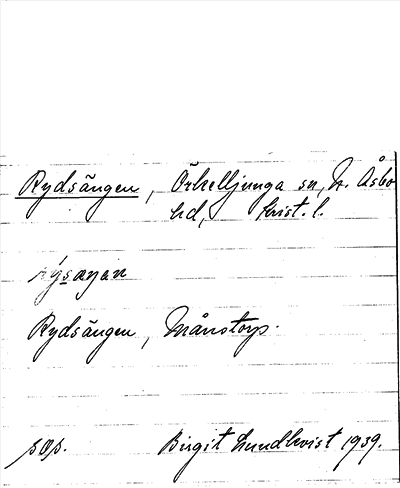 Rydsängen, Örkelljunga sn, N. Åsbo
hd, Krist. l.
rýsaŋan
Rydsängen, Månstorp.
sop. Birgit Lundkvist 1939.